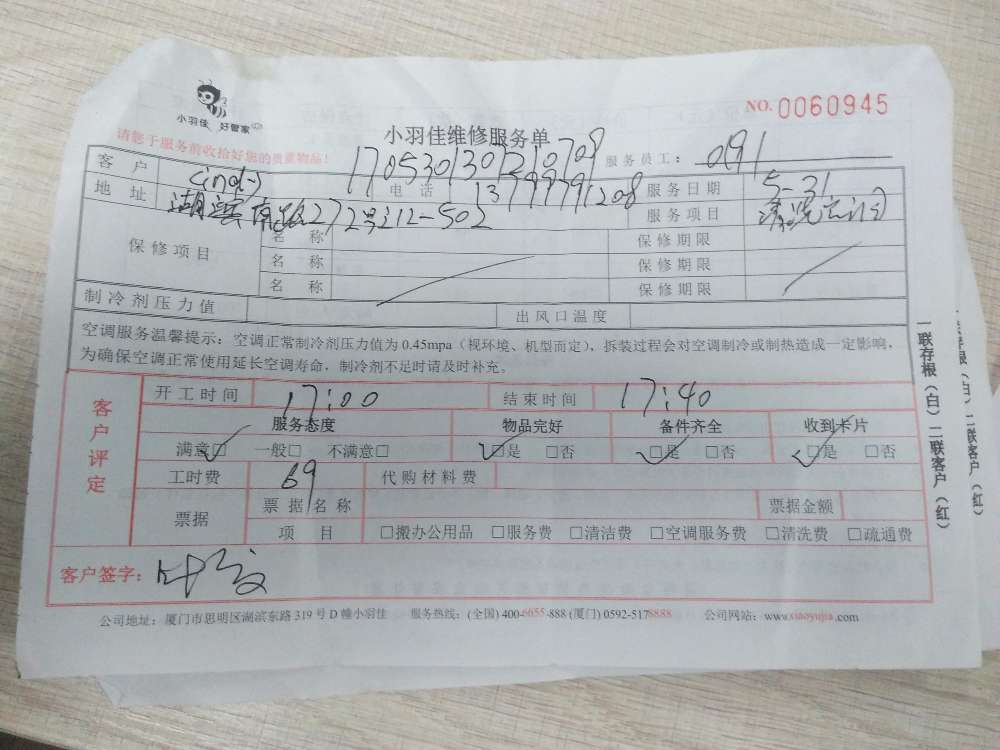 小羽佳 好管家
NO. 0060945
请您于服务前收拾好您的贵重物品！
小羽佳维修服务单
170530130720709
服务员工： 091
客户 Cindy 电话 13799791208 服务日期 5-31
地址 湖滨南路272号212-502 服务项目 清洗
保修项目 名称 保修期限
名称 保修期限
名称 保修期限
制冷剂压力值 出风口温度
空调服务温馨提示：空调正常制冷剂压力值为 0.45mpa（视环境、机型而定），拆装过程会对空调制冷或制热造成一定影响，
为确保空调正常使用延长空调寿命，制冷剂不足时请及时补充。
客户评定
开工时间 17:00 结束时间 17:40
服务态度 物品完好 备件齐全 收到卡片
满意□ 一般□ 不满意□ □是 □否 □是 □否 □是 □否
工时费 69 代购材料费
票据 票据名称 票据金额
项目 □搬办公用品 □服务费 □清洁费 □空调服务费 □清洗费 □疏通费
客户签字：
公司地址：厦门市思明区湖滨东路 319 号 D 幢小羽佳 服务热线：(全国) 400-6655-888 (厦门) 0592-5178888 公司网站：www.xiaoyujia.com
一联存根（白）二联客户（红）
联存根（白）二联客户（红）